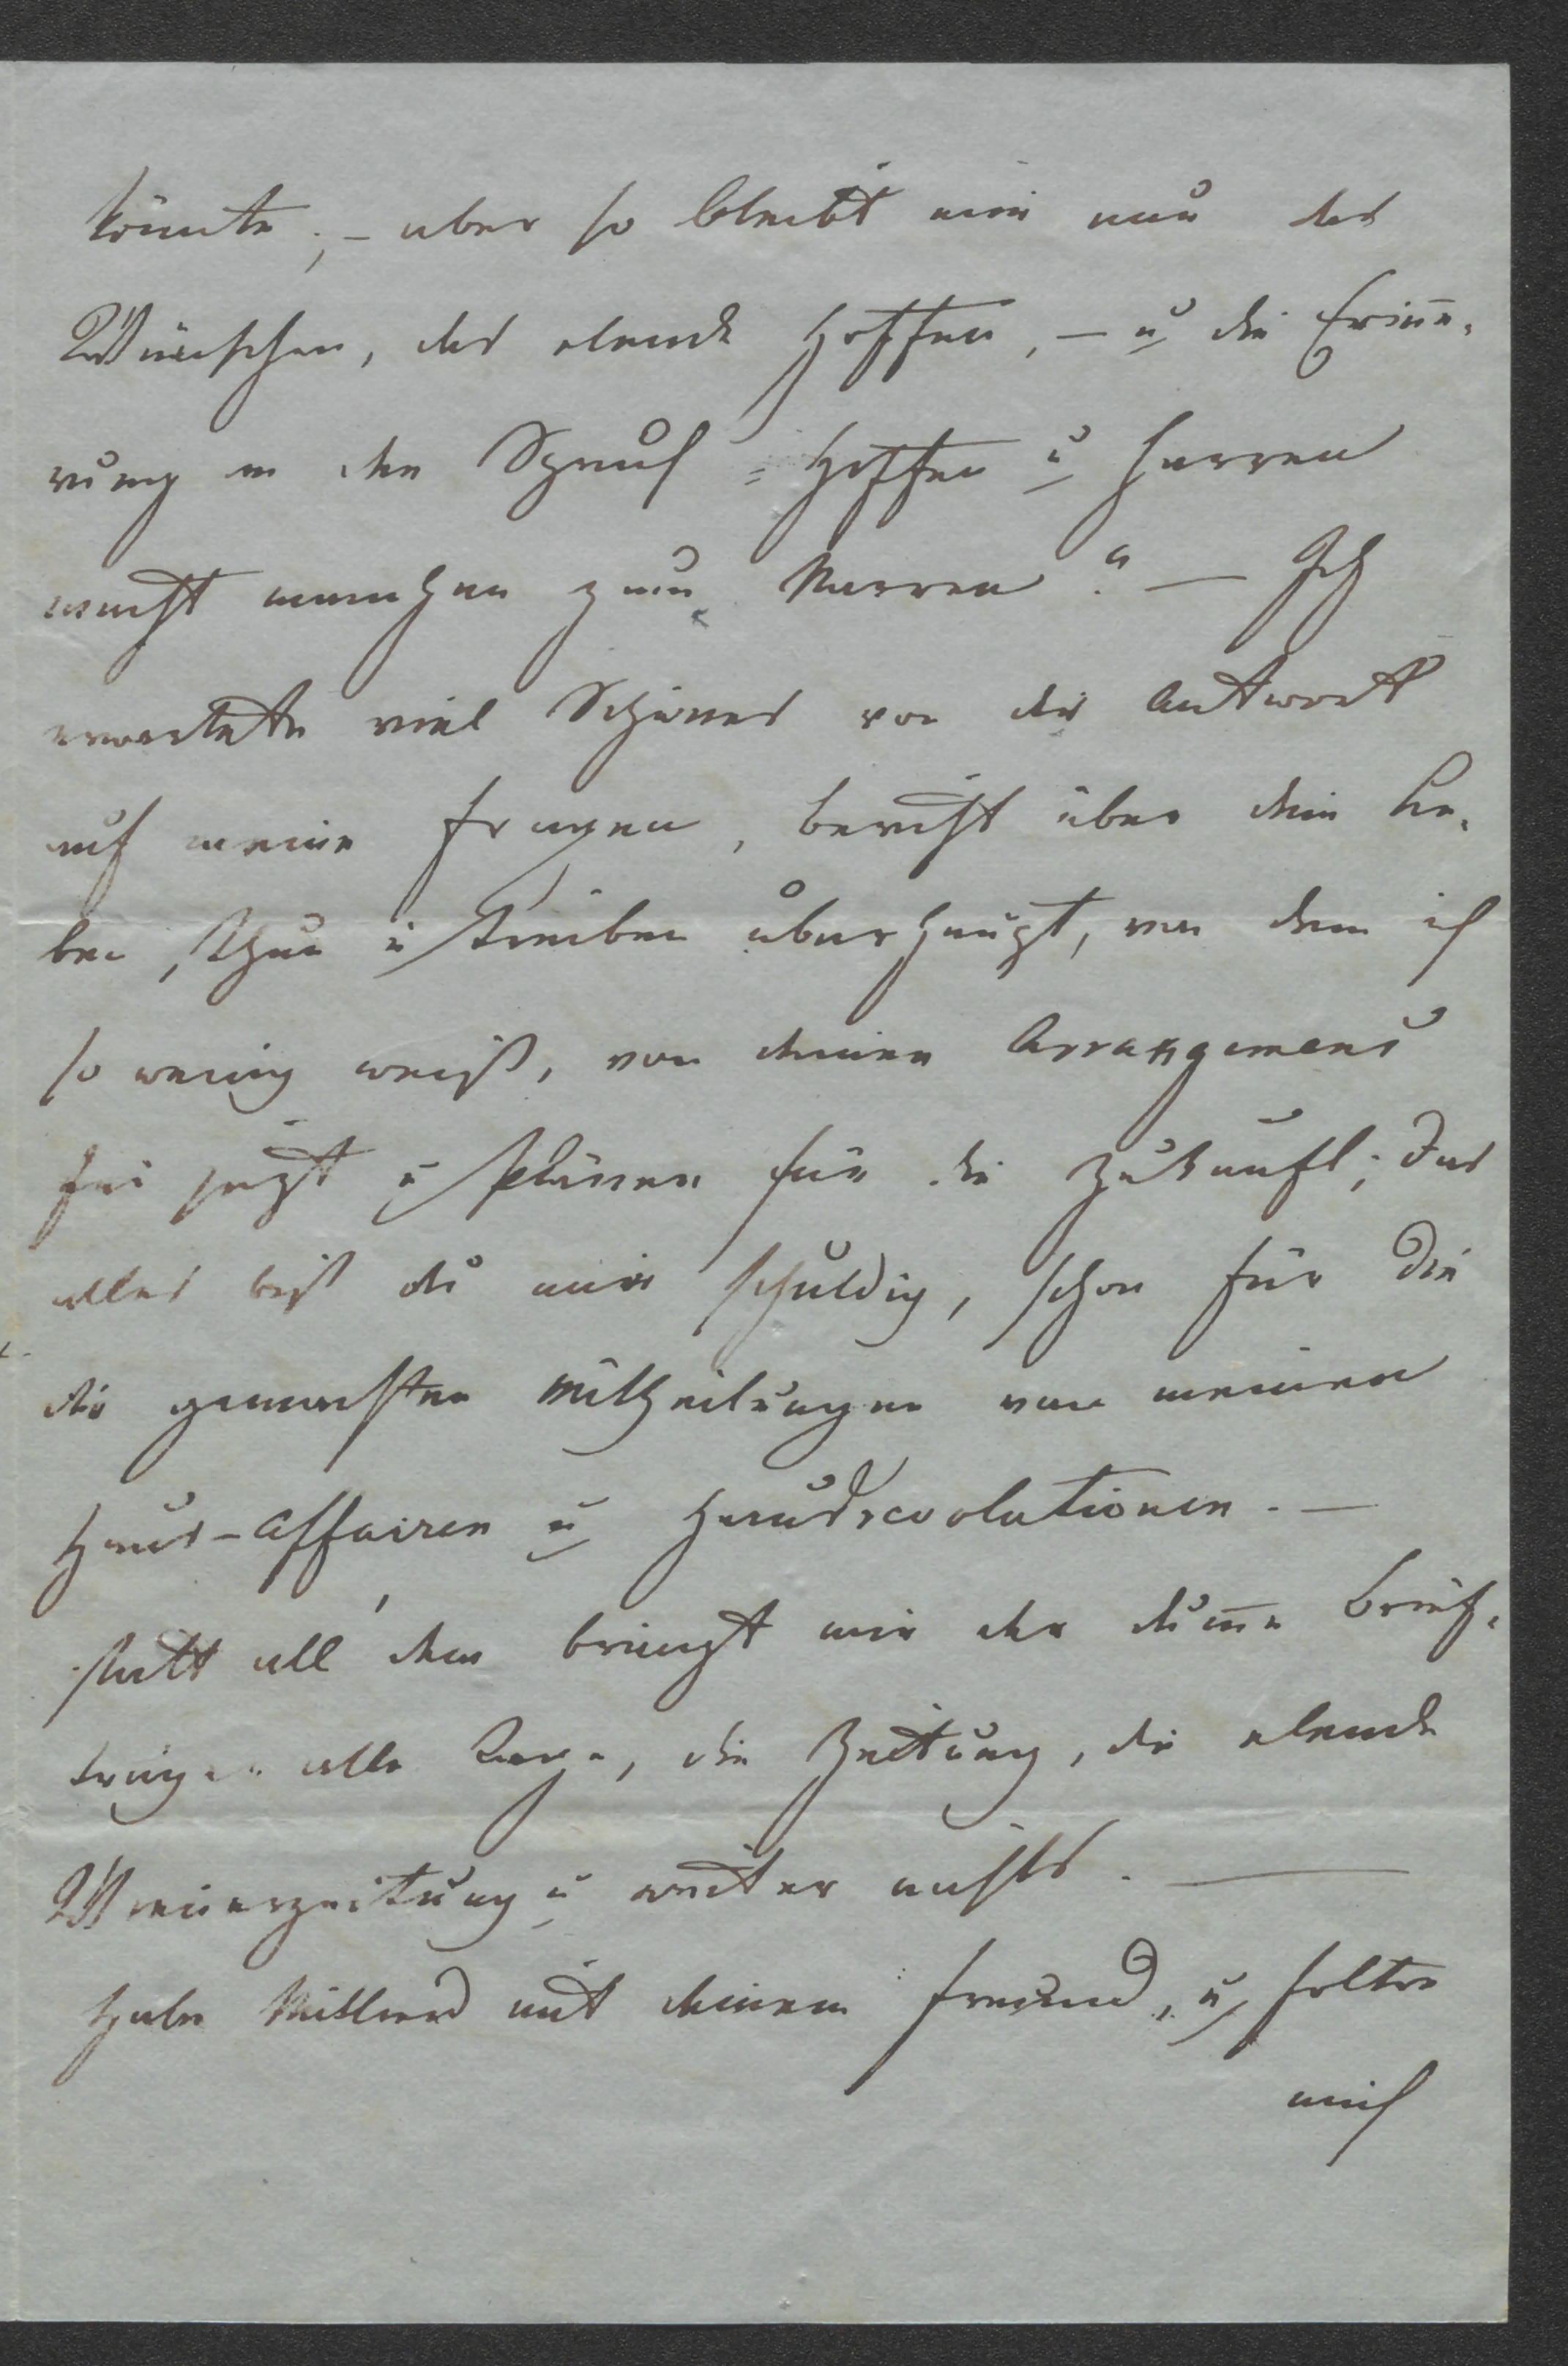 könnte; – aber so bleibt mir nur das
Wünschen, das elende Hoffen, – u die Erinne-
rung an den Spruch „Hoffen u Harren
macht manchen zum Narren." – Ich
erwartete viel Schönes von der Antwort
auf meine Fragen, bericht über dein Le-
ben, Thun u Treiben überhaupt, von dem ich
so wenig weiß, von deinen Arrangemens
für jezt u Plänen für die Zukunft; Das
alles bist du mir schuldig, schon für Die
dir gemachten Mittheilungen von meinen
Haus-Affairen u Hausrevolutionen. –
statt all' dem bringt mir der dumme Brief-
träger alle Tage, die Zeitung, die elende
Wienerzeitung u weiter nichts. –
Habe Mitleid mit deinem Freund, u foltre
mich